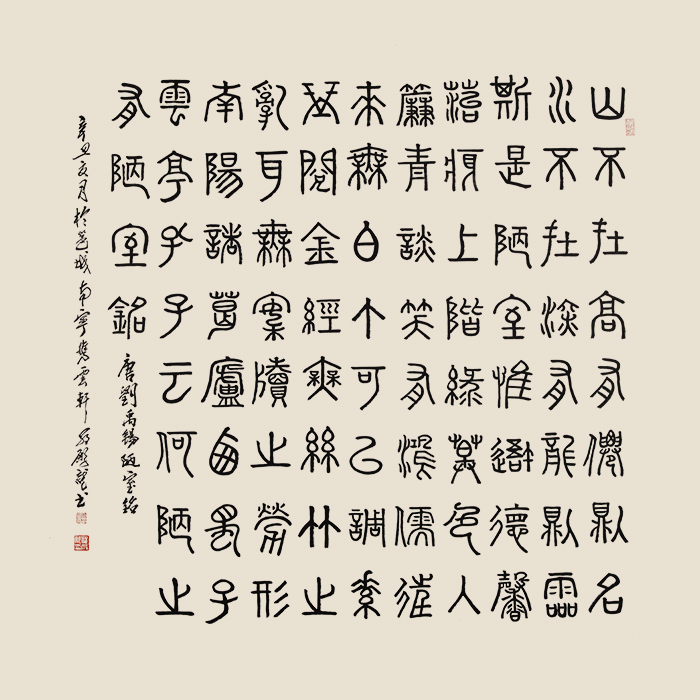 山不在高有僊則名
水不在深有龍則靈
斯是陋室惟吾德馨
苔痕上階綠草色入
簾青談笑有鴻儒往
來無白丁可以調素
琴閱金經無絲竹之
亂耳無案牘之勞形
南陽諸葛廬西蜀子
雲亭孔子云何陋之
有陋室銘
唐劉禹錫陋室銘
辛丑亥月於邕城南寧雲軒書